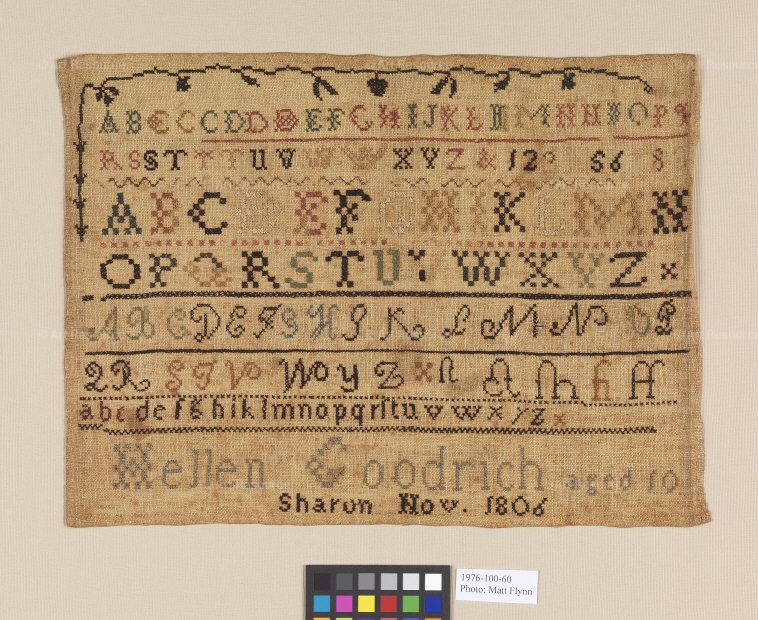 A B C C C D D D E F G H I J K L H M N H I O P 9
R S S T T T U V W W X Y Z & 1 2 3 5 6 8
A B C D E F G H I K L M N
O P Q R S T U V W X Y Z ×
A B C D E F G H I K L M N O P
Q R S T V W y Z × 
a b c d e f g h i k l m n o p q r ſ t u v w x y z ×
Hellen Goodrich aged 10
Sharon Nov. 1806
1976-100-60
Photo: Matt Flynn